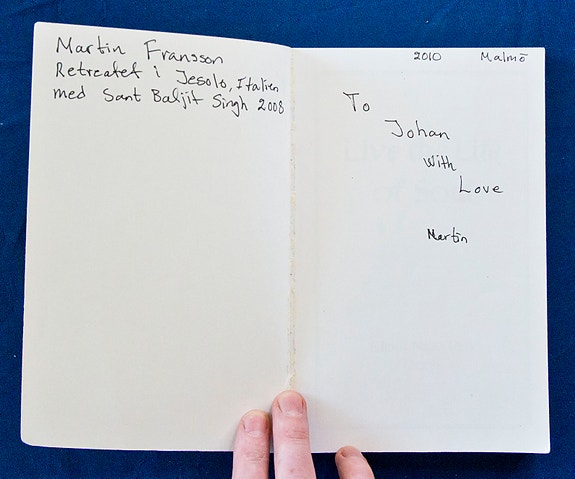 Martin Fransson
Retreatet i Jesolo, Italien
med Sant Baljit Singh 2008
2010 Malmö
To
Johan
With
Love
Martin